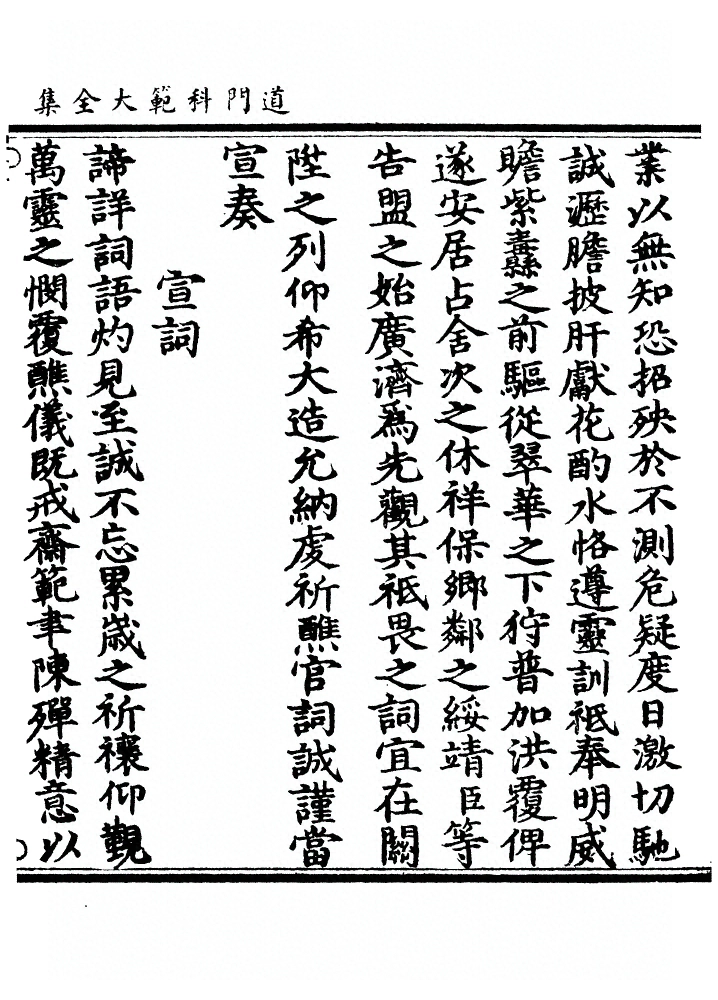 道門科範大全集
業以無知恐招殃於不測危疑度日激切馳
誠瀝膽披肝獻花酌水恪遵靈訓祗奉明威
瞻紫纛之前驅從翠華之下狩普加洪覆俾
遂安居占舍次之休祥保鄉鄰之綏靖臣等
告盟之始廣濟為先觀其祗畏之詞宜在關
陞之列仰希大造允納虔祈醮官詞誠謹當
宣奏
宣詞
諦詳詞語灼見至誠不忘累歲之祈禳仰覬
萬靈之憫覆醮儀既戒齋範聿陳殫精意以